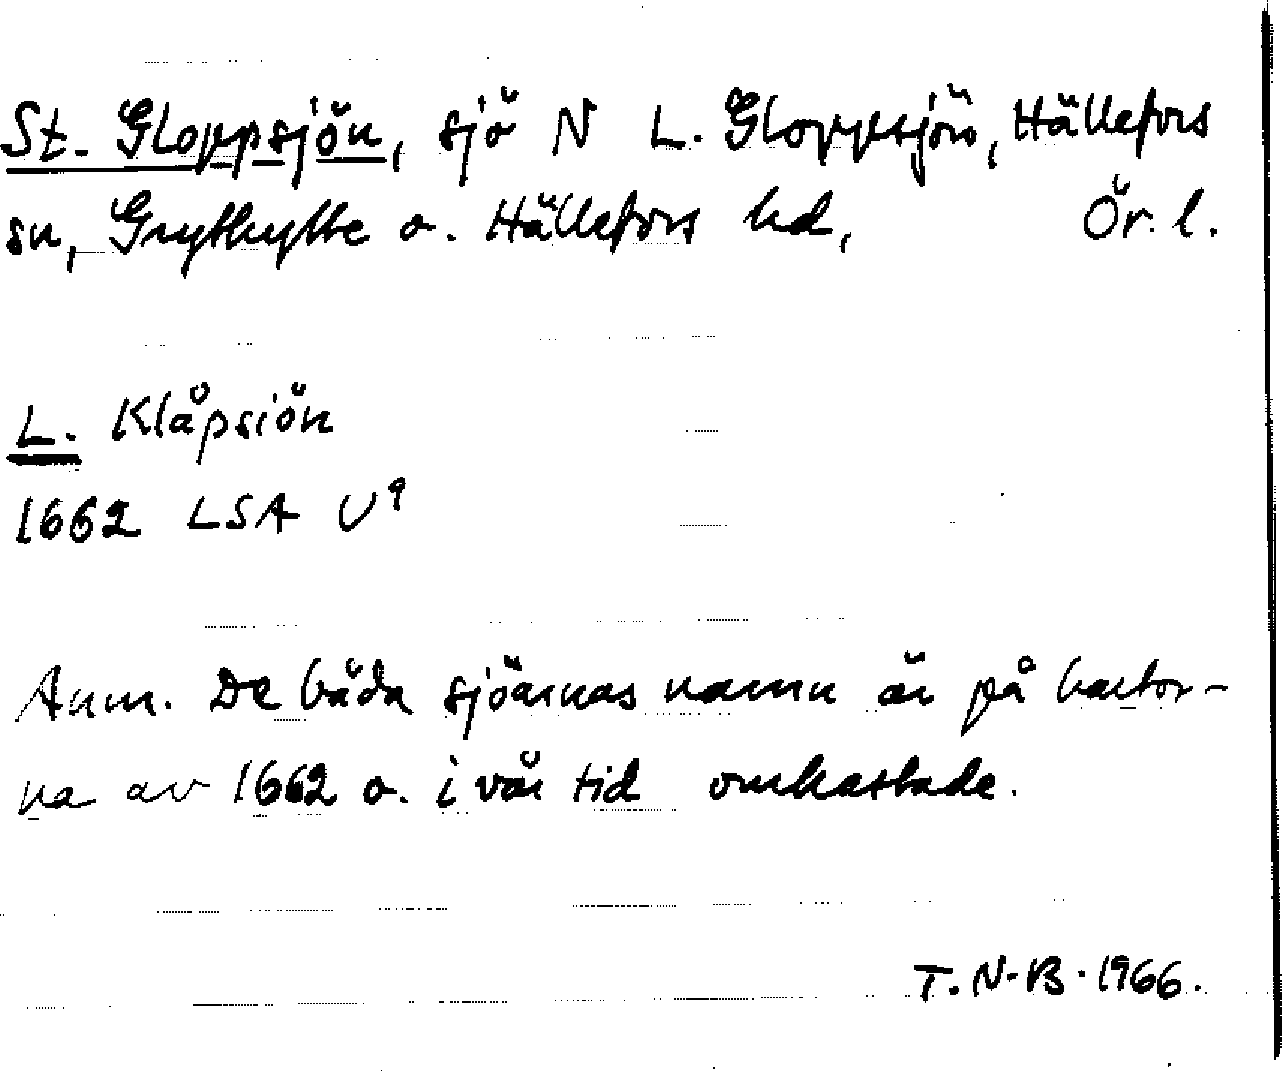 St. Gloppsjön, sjö N L. Gloppsjön, Hällefors
sn, Grythytte o. Hällefors hd, Ör. l.
L. Klåpsiön
1662 LSA U9
Anm. De båda sjöarnas namn är på kartor-
na av 1662 o. i vår tid omkastade.
T. N-B. 1966.